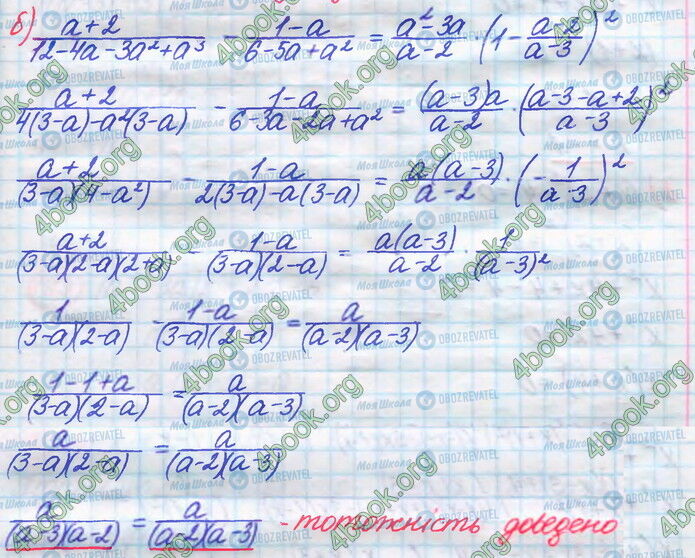 б) (a+2)/(12-4a-3a²+a³) - (1-a)/(6-5a+a²) = (a²-3a)/(a-2) (1-(a-2)/(a-3))²
(a+2)/(4(3-a)-a²(3-a)) - (1-a)/(6-3a-2a+a²) = ((a-3)a)/(a-2) · ((a-3-a+2)/(a-3))²
(a+2)/((3-a)(4-a²)) - (1-a)/(2(3-a)-a(3-a)) = (a(a-3))/(a-2) · (-1/(a-3))²
(a+2)/((3-a)(2-a)(2+a)) - (1-a)/((3-a)(2-a)) = (a(a-3))/(a-2) · 1/(a-3)²
1/((3-a)(2-a)) - (1-a)/((3-a)(2-a)) = a/((a-2)(a-3))
(1-1+a)/((3-a)(2-a)) = a/((a-2)(a-3))
a/((3-a)(2-a)) = a/((a-2)(a-3))
a/((a-3)(a-2)) = a/((a-2)(a-3)) - тотожність доведено
4book.org
Моя Школа
OBOZREVATEL